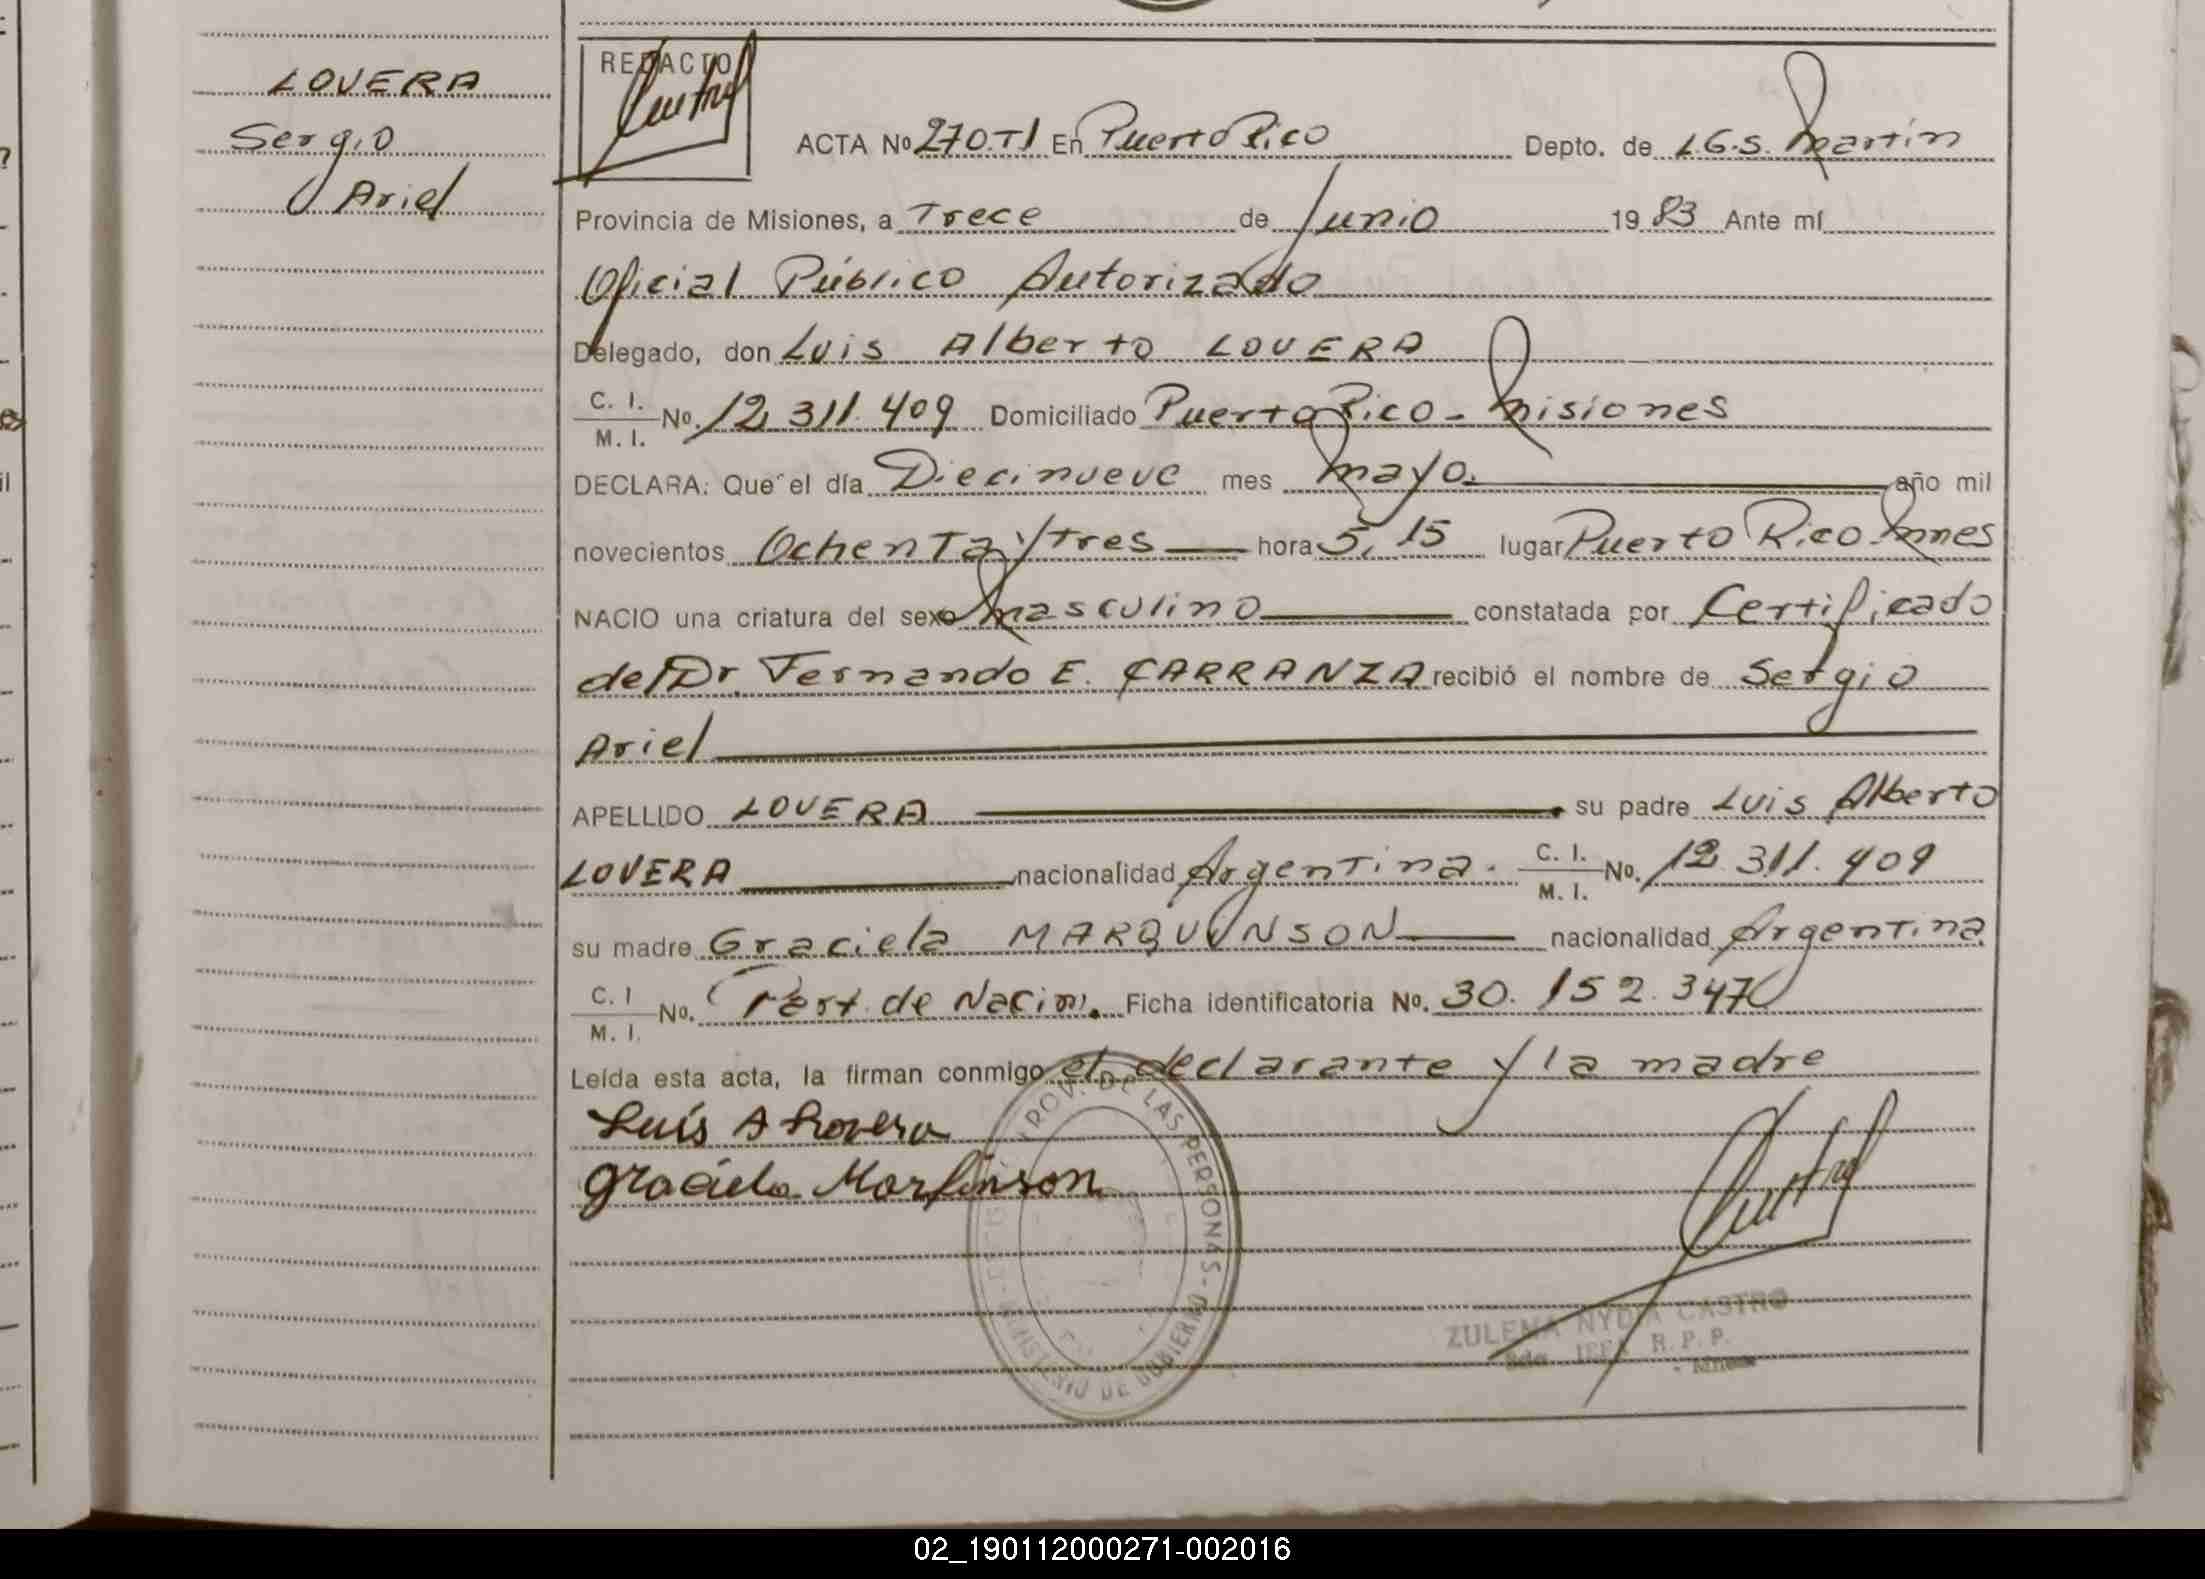 LOVERA
Sergio
Ariel
REDACTO
ACTA Nº 270.T1 En Puerto Rico Depto. de L.G.S. Martín
Provincia de Misiones, a Trece de Junio 19 83 Ante mí
Oficial Público Autorizado
Delegado, don Luis Alberto LOVERA
C. I. / M. I. Nº. 12.311.409 Domiciliado Puerto Rico - Misiones
DECLARA: Que el día Diecinueve mes mayo. año mil
novecientos Ochenta y tres hora 5, 15 lugar Puerto Rico - Mnes
NACIO una criatura del sexo masculino constatada por Certificado
del Dr. Fernando E. CARRANZA recibió el nombre de Sergio
Ariel
APELLIDO LOVERA su padre Luis Alberto
LOVERA nacionalidad Argentina. C. I. / M. I. Nº. 12.311.409
su madre Graciela MARQUINSON nacionalidad Argentina
C. I / M. I. Nº. de Nacim. Ficha identificatoria Nº. 30.152.347
Leída esta acta, la firman conmigo el declarante y la madre
Luis A Lovera
Graciela Marfinson
PROV. DE LAS PERSONAS - MINISTERIO DE GOBIERNO
ZULEMA NYDIA CASTRO
JEFA R. P. P.
02_190112000271-002016